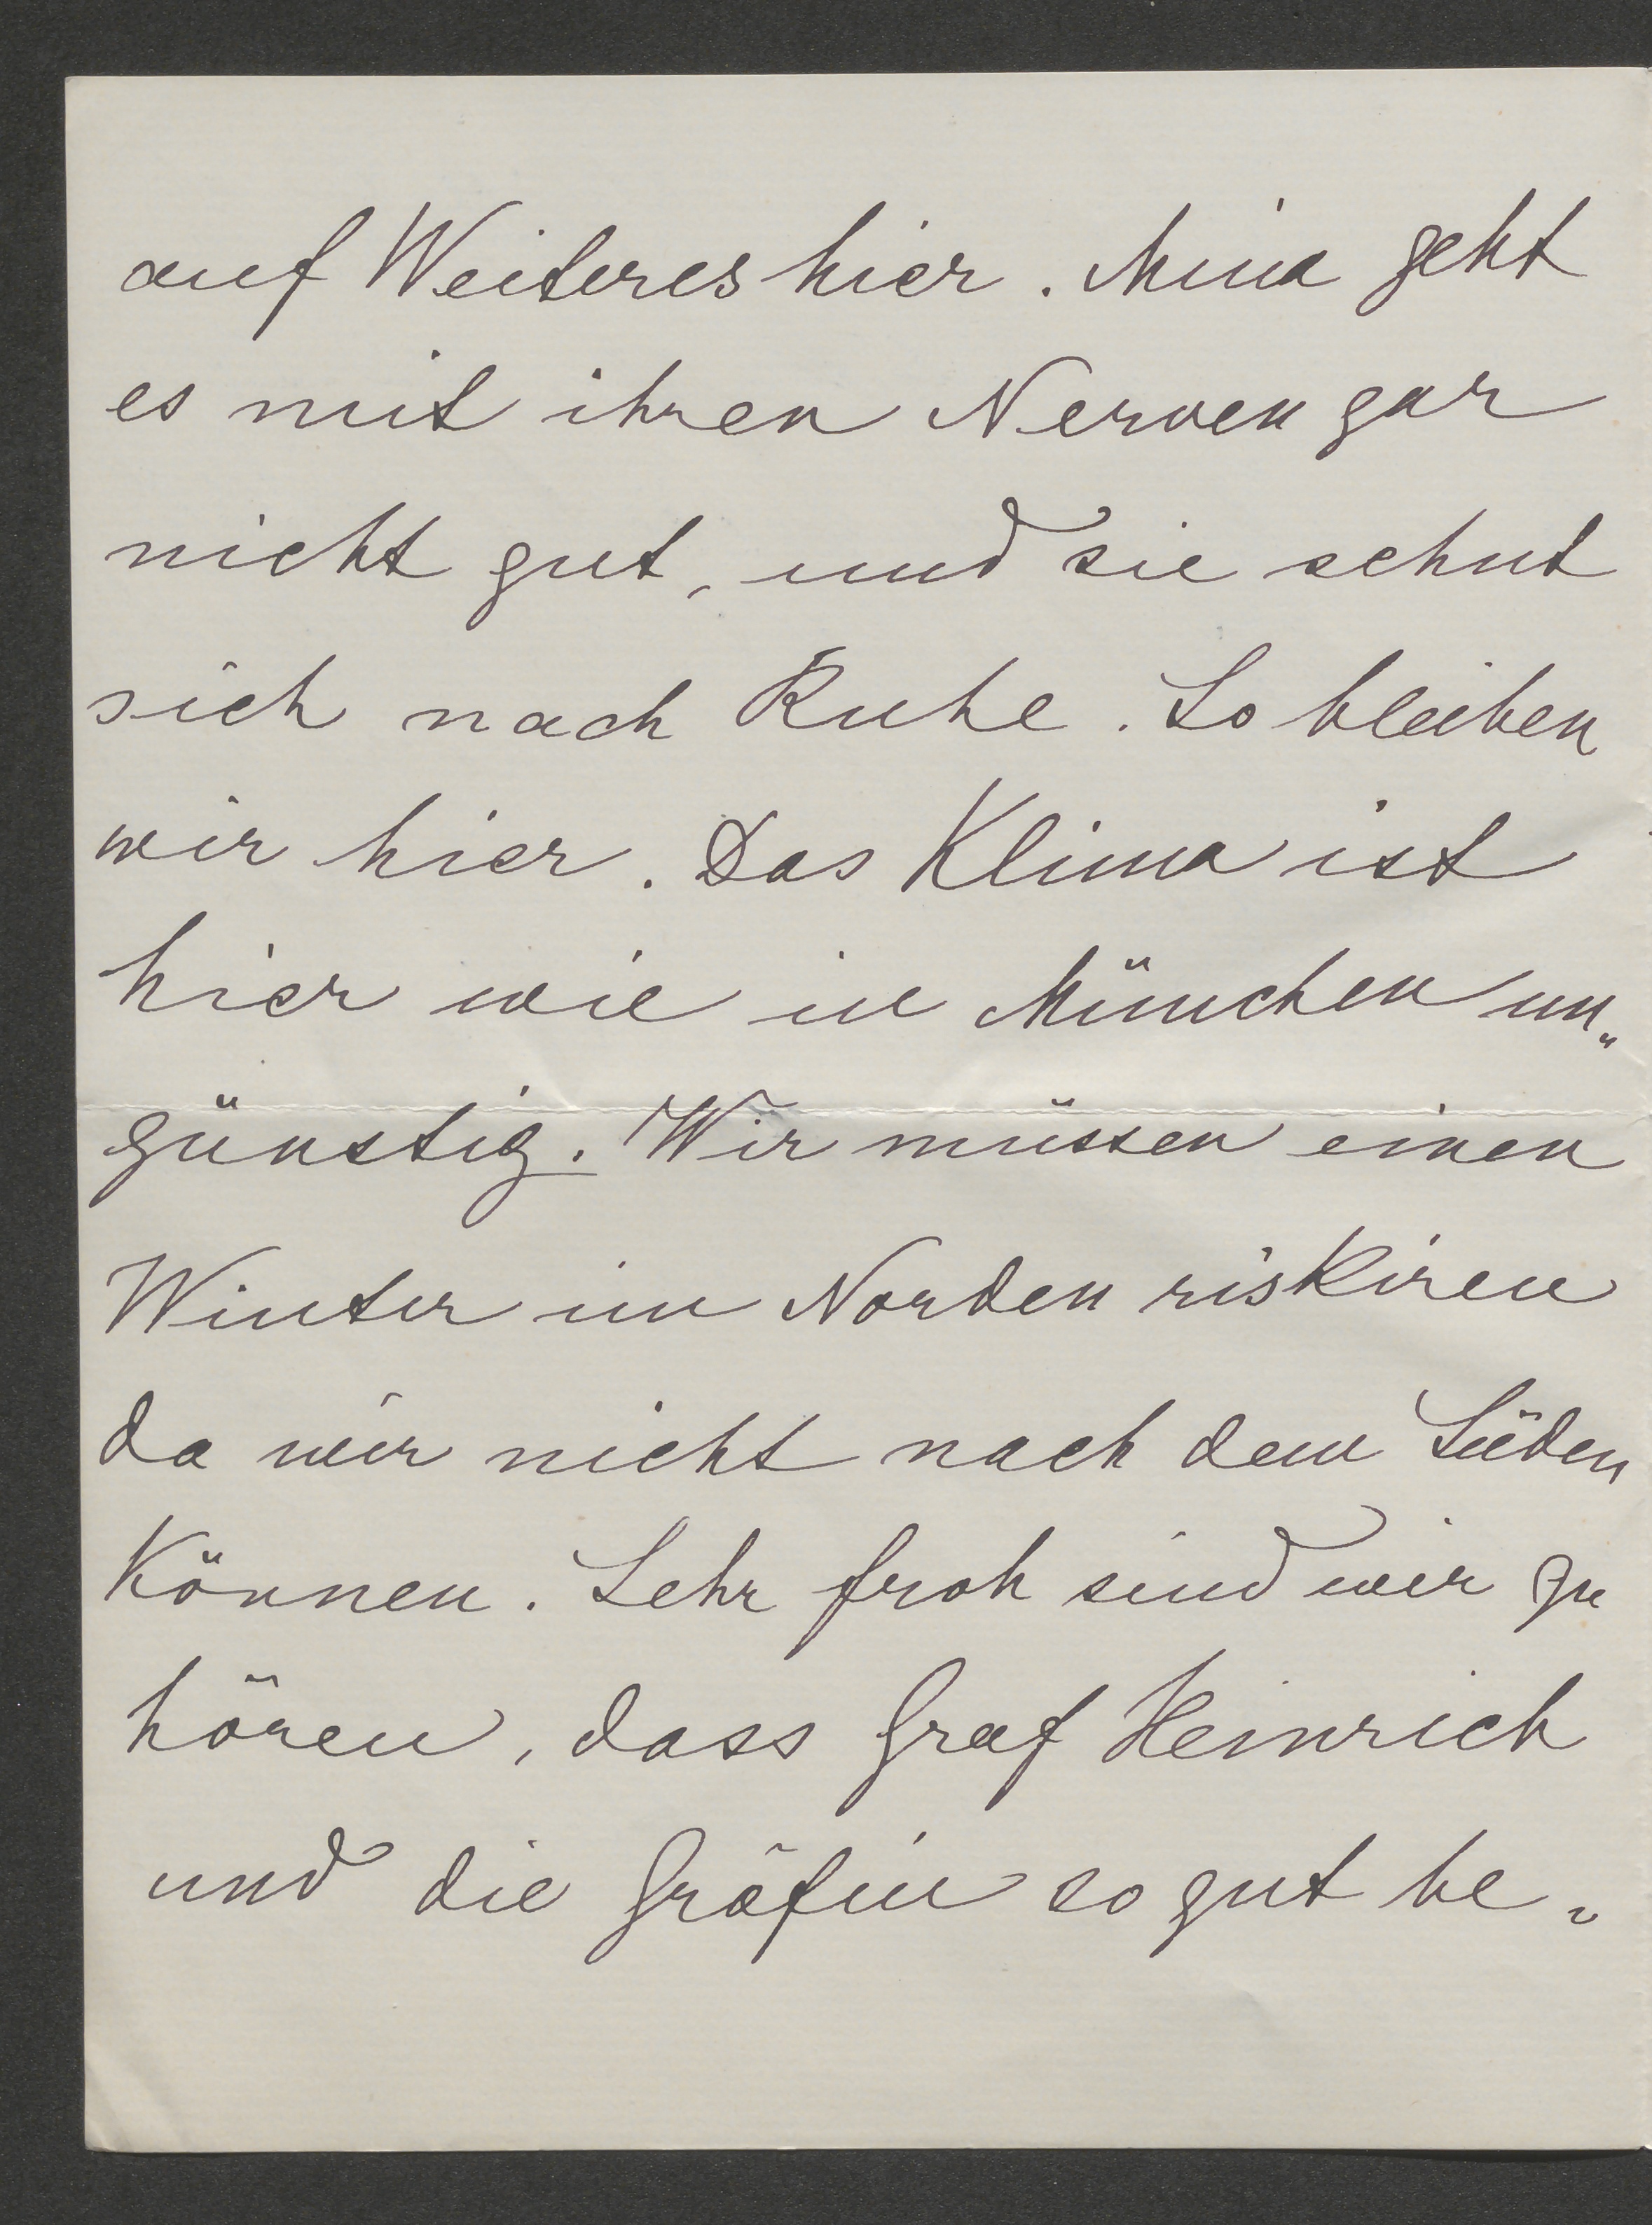 auf Weiteres hier. Mina geht
es mit ihren Nerven gar
nicht gut, und sie sehnt
sich nach Ruhe. So bleiben
wir hier. Das Klima ist
hier wie in München un„
günstig. Wir müssen einen
Winter im Norden riskiren
da wir nicht nach dem Süden
können. Sehr froh sind wir zu
hören, dass Graf Heinrich
und die Gräfin so gut be„